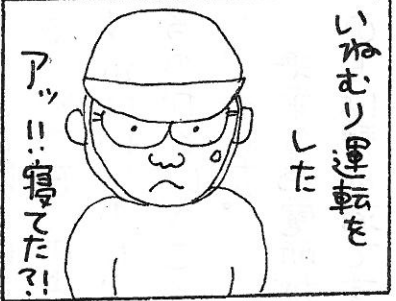 いねむり運転を
した
アッ!!寝てた?!